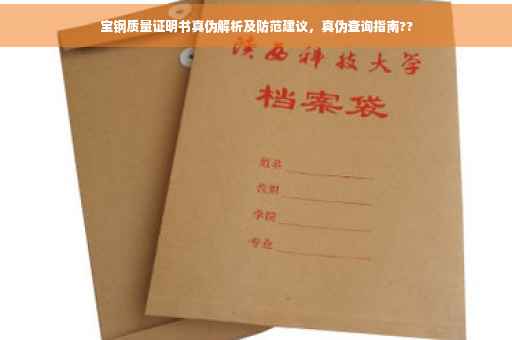 宝钢质量证明书真伪解析及防范建议，真伪查询指南??
陕西科技大学
档案袋
姓名
学院
专业